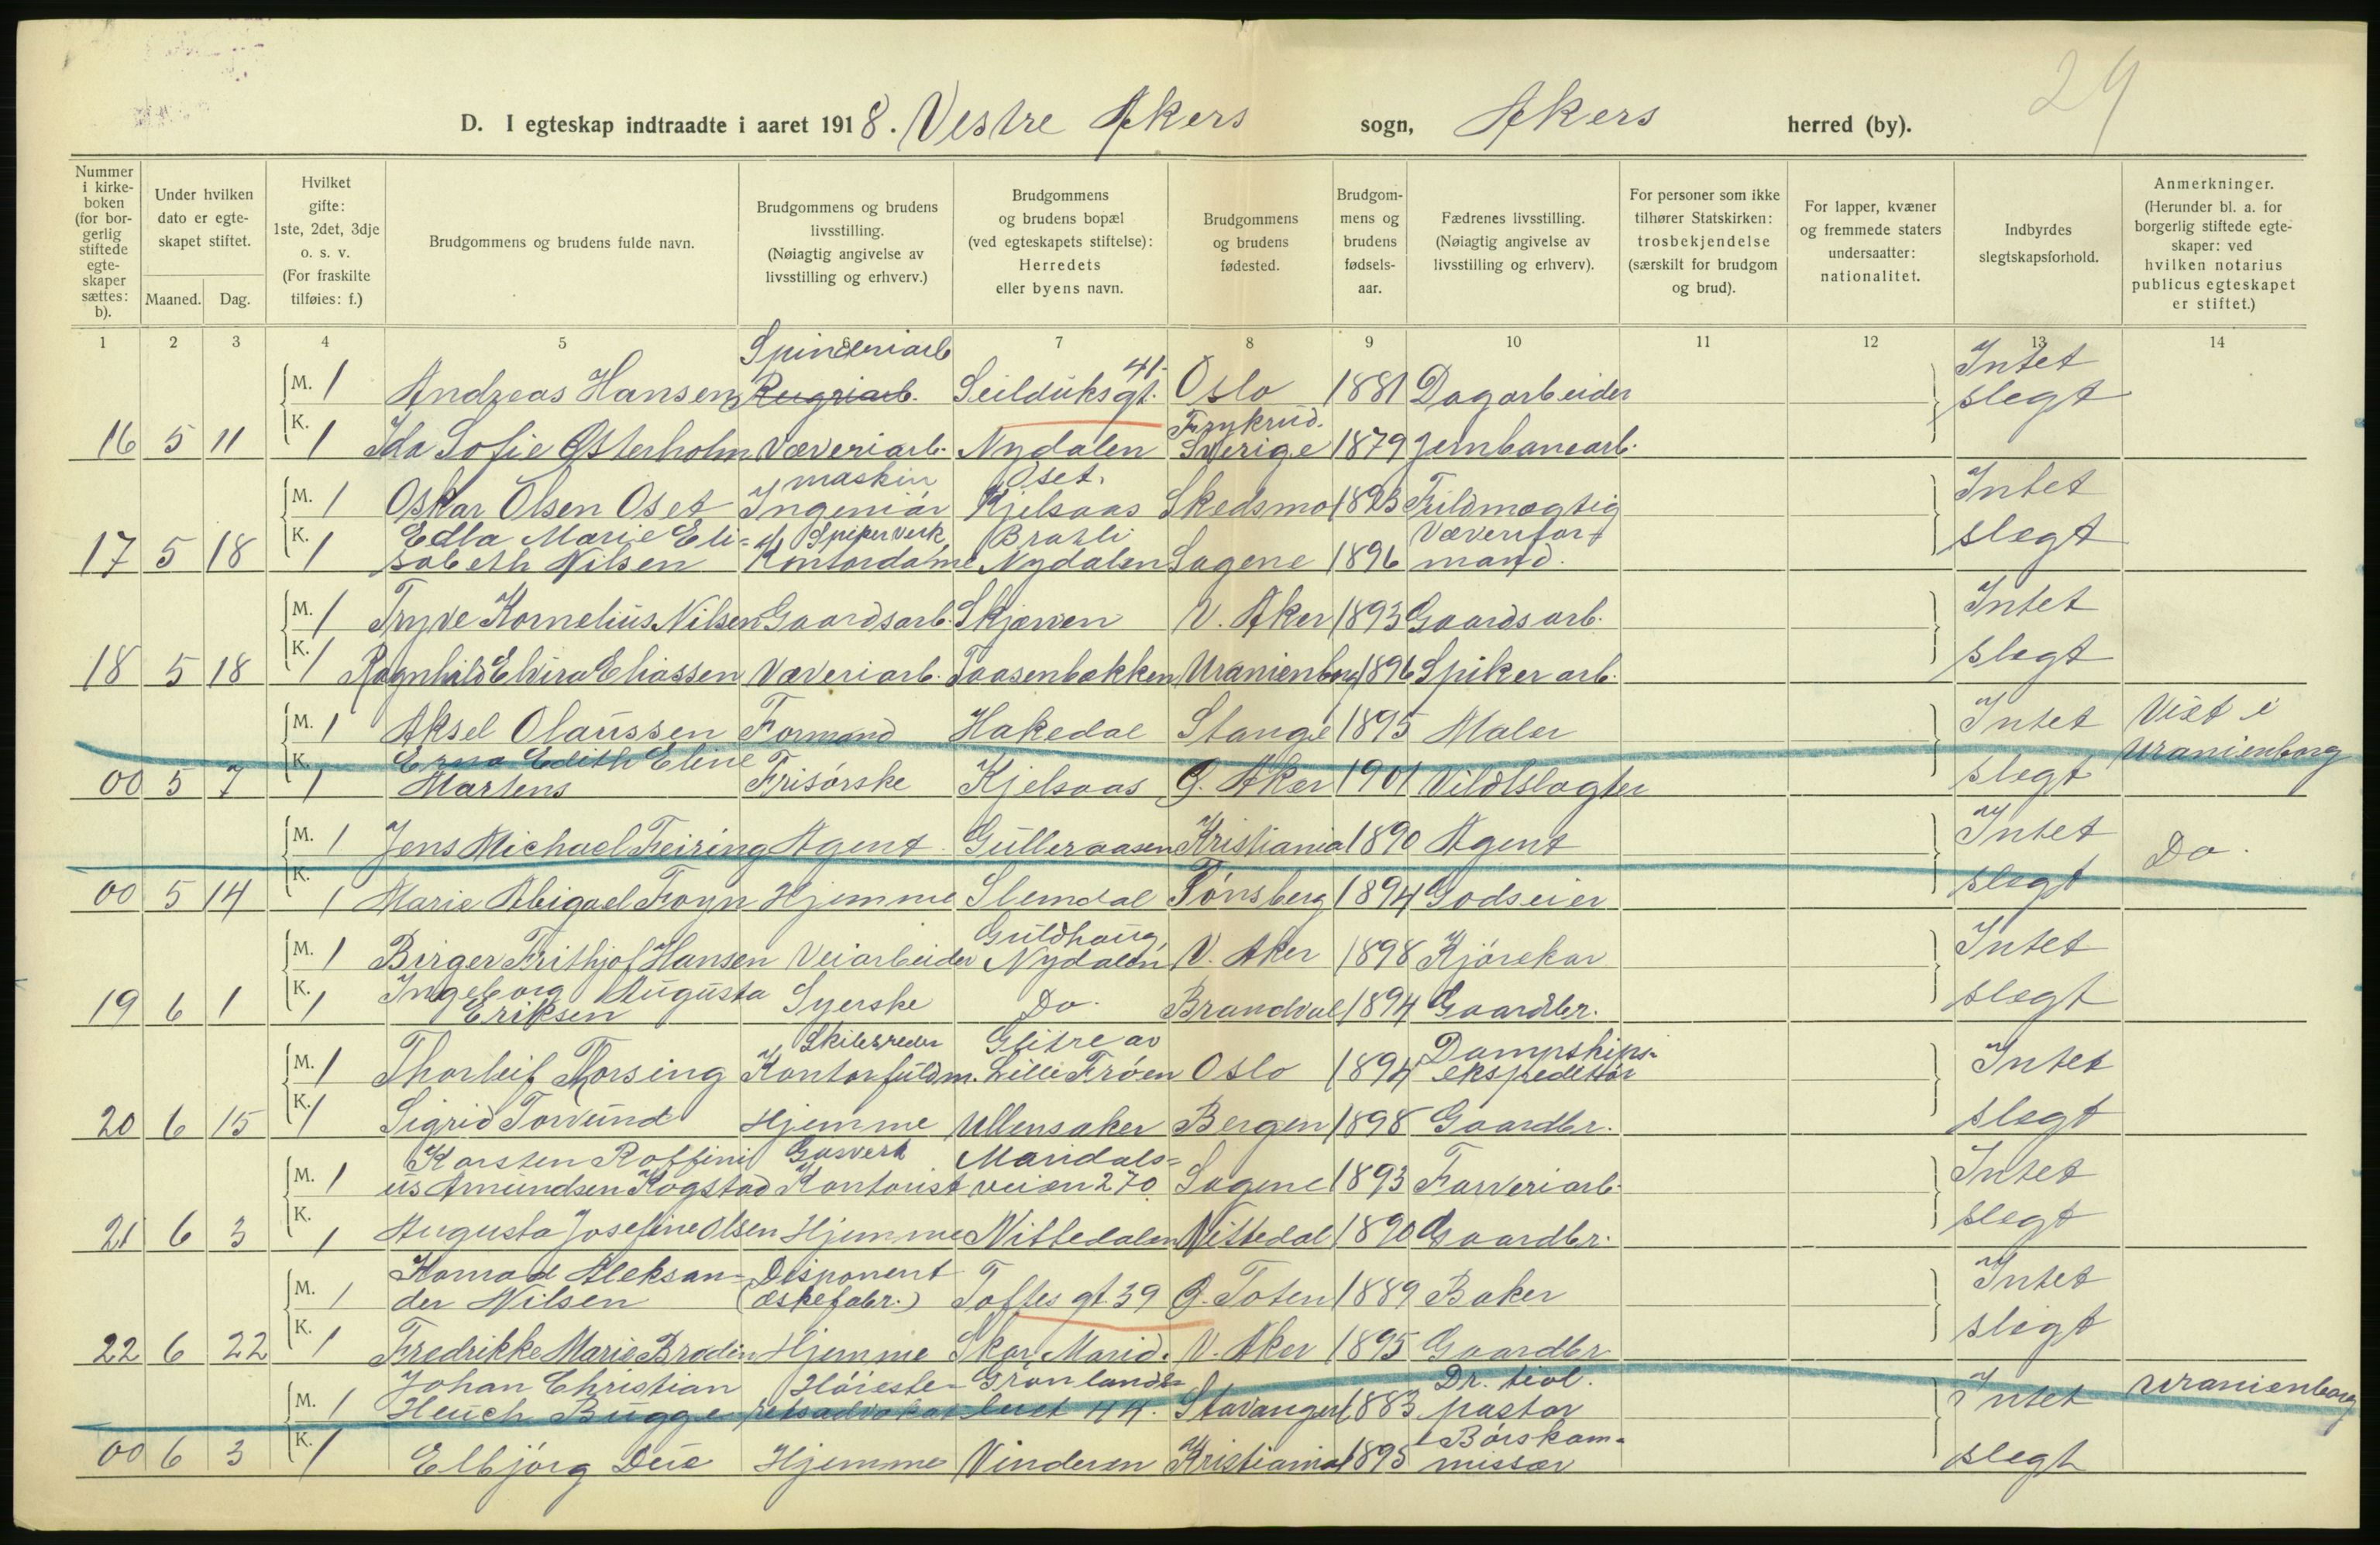 29
D. I egteskap indtraadte i aaret 1918. Vestre Akers sogn, Akers herred (by).
Nummer i kirkeboken (for borgerlig stiftede egteskaper sættes: b).
Under hvilken dato er egteskapet stiftet.
Maaned. Dag.
Hvilket gifte: 1ste, 2det, 3dje o. s. v. (For fraskilte tilføies: f.)
Brudgommens og brudens fulde navn.
Brudgommens og brudens livsstilling. (Nøiagtig angivelse av livsstilling og erhverv.)
Brudgommens og brudens bopæl (ved egteskapets stiftelse): Herredets eller byens navn.
Brudgommens og brudens fødested.
Brudgommens og brudens fødselsaar.
Fædrenes livsstilling. (Nøiagtig angivelse av livsstilling og erhverv).
For personer som ikke tilhører Statskirken: trosbekjendelse (særskilt for brudgom og brud).
For lapper, kvæner og fremmede staters undersaatter: nationalitet.
Indbyrdes slegtskapsforhold.
Anmerkninger. (Herunder bl. a. for borgerlig stiftede egteskaper: ved hvilken notarius publicus egteskapet er stiftet.)
1 2 3 4 5 6 7 8 9 10 11 12 13 14
M. 1 Andreas Hansen Spinderiarb Seilduksgt. 41. Oslo 1881 Dagarbeider Intet
16 5 11 K. 1 Ida Sofie Østerholm Væveriarb. Nydalen Frykrud. Sverige 1879 Jernbanearb. slegt
M. 1 Oskar Olsen Oset maskin Ingeniør Oset, Kjelsaas Skedsmo 1893 Fuldmægtig Intet
17 5 18 K. 1 Edla Marie Elisabeth Nilsen Spikerverk Kontordame Bratli Nydalen Sagene 1896 Væveriformand. slegt
M. 1 Trygve Kornelius Nilsen Gaardsarb. Skjærven V. Aker 1893 Gaardsarb. Intet
18 5 18 K. 1 Ragnhild Elvira Eliassen Væveriarb. Taasenbakken Uranienborg 1896 Spikerarb. slegt
M. 1 Aksel Olaussen Formand Hakedal Stange 1895 Maler Intet Viet i Uranienborg
00 5 7 K. 1 Erna Edith Eline Martens Frisørske Kjelsaas Ø. Aker 1901 Vildtslagter slegt
M. 1 Jens Michael Feiring Agent Gulleraasen Kristiania 1890 Agent Intet Do.
00 5 14 K. 1 Marie Abigael Foyn Hjemme Slemdal Tønsberg 1894 Godseier slegt
M. 1 Birger Frithjof Hansen Veiarbeider Guldhaug, Nydalen V. Aker 1898 Kjørekar Intet
19 6 1 K. 1 Ingeborg Augusta Eriksen Syerske Do. Brandval 1894 Gaardbr. slegt
M. 1 Thorleif Thorsing Skibsreder Kontorfuldm. Glitre av Lille Frøen Oslo 1894 Dampskipsekspeditør Intet
20 6 15 K. 1 Sigrid Torvund Hjemme Ullensaker Bergen 1898 Gaardbr. slegt
M. 1 Karsten Roffinius Amundsen Kogstad Gasverk Kontorist Maridalsveien 270 Sagene 1893 Farveriarb. Intet
21 6 3 K. 1 Augusta Josefine Olsen Hjemme Nittedalen Nittedal 1890 Gaardbr. slegt
M. 1 Konrad Aleksander Nilsen Disponent (æskefabr.) Toftes gt. 39 Ø. Toten 1889 Baker Intet
22 6 22 K. 1 Fredrikke Marie Brodin Hjemme Skar, Marid. V. Aker 1895 Gaardbr slegt
M. 1 Johan Christian Heuch Bugge Høiesteretsadvokat Grønlandsleret 44. Stavanger 1883 Dr. teol. pastor Intet Uranienborg
00 6 3 K. 1 Elbjørg Due Hjemme Vinderen Kristiania 1895 Børskommissær slegt